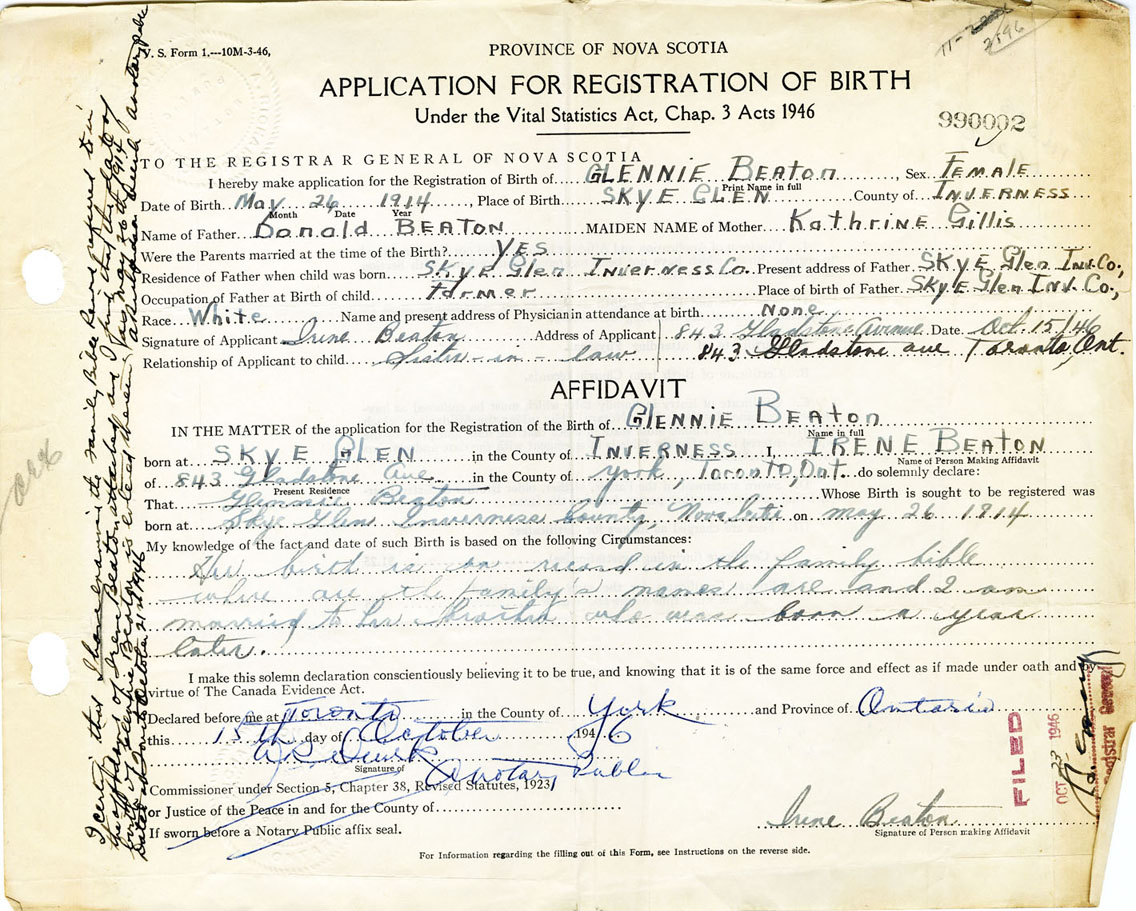 V. S. Form 1.---10M-3-46,
PROVINCE OF NOVA SCOTIA
2596
APPLICATION FOR REGISTRATION OF BIRTH
Under the Vital Statistics Act, Chap. 3 Acts 1946
990002
TO THE REGISTRAR GENERAL OF NOVA SCOTIA
I hereby make application for the Registration of Birth of GLENNIE BEATON, Sex FEMALE
Print Name in full
Date of Birth May 26 1914, Place of Birth SKYE GLEN County of INVERNESS
Month Date Year
Name of Father Donald BEATON MAIDEN NAME of Mother Kathrine Gillis
Were the Parents married at the time of the Birth? YES
Residence of Father when child was born SKYE Glen Inverness Co. Present address of Father SKYE Glen Inv. Co.,
Occupation of Father at Birth of child farmer Place of birth of Father SKYE Glen Inv. Co.,
Race White Name and present address of Physician in attendance at birth None
Signature of Applicant Irene Beaton Address of Applicant 843 Gladstone Avenue Date Oct. 15/46
Relationship of Applicant to child Sister-in-law 843 Gladstone ave Toronto, Ont.
AFFIDAVIT
IN THE MATTER of the application for the Registration of the Birth of GLENNIE BEATON
Name in full
born at SKYE GLEN in the County of INVERNESS I, IRENE BEATON
Name of Person Making Affidavit
of 843 Gladstone Ave in the County of York, Toronto, Ont. do solemnly declare:
Present Residence
That Glennie Beaton Whose Birth is sought to be registered was
born at Skye Glen Inverness County, Nova on May 26 1914
My knowledge of the fact and date of such Birth is based on the following Circumstances:
Her birth is on record in the family bible
where are the family's names are and I am
married to her brother who was born a year
later.
I make this solemn declaration conscientiously believing it to be true, and knowing that it is of the same force and effect as if made under oath and by
virtue of The Canada Evidence Act.
Declared before me at Toronto in the County of York and Province of Ontario
this 15th day of October 1946
Signature of
A Notary Public
Commissioner under Section 5, Chapter 38, Revised Statutes, 1923
or Justice of the Peace in and for the County of
If sworn before a Notary Public affix seal.
Irene Beaton
Signature of Person making Affidavit
For Information regarding the filling out of this Form, see Instructions on the reverse side.
FILED
OCT 23 1946
Registrar General
I certify that I have examined the family Bible Record referred to in
the affidavit of Irene Beaton attached and I find that the date of
birth of Glennie Beaton was entered therein as May 26th 1914
Dated at Toronto October 21st 1946